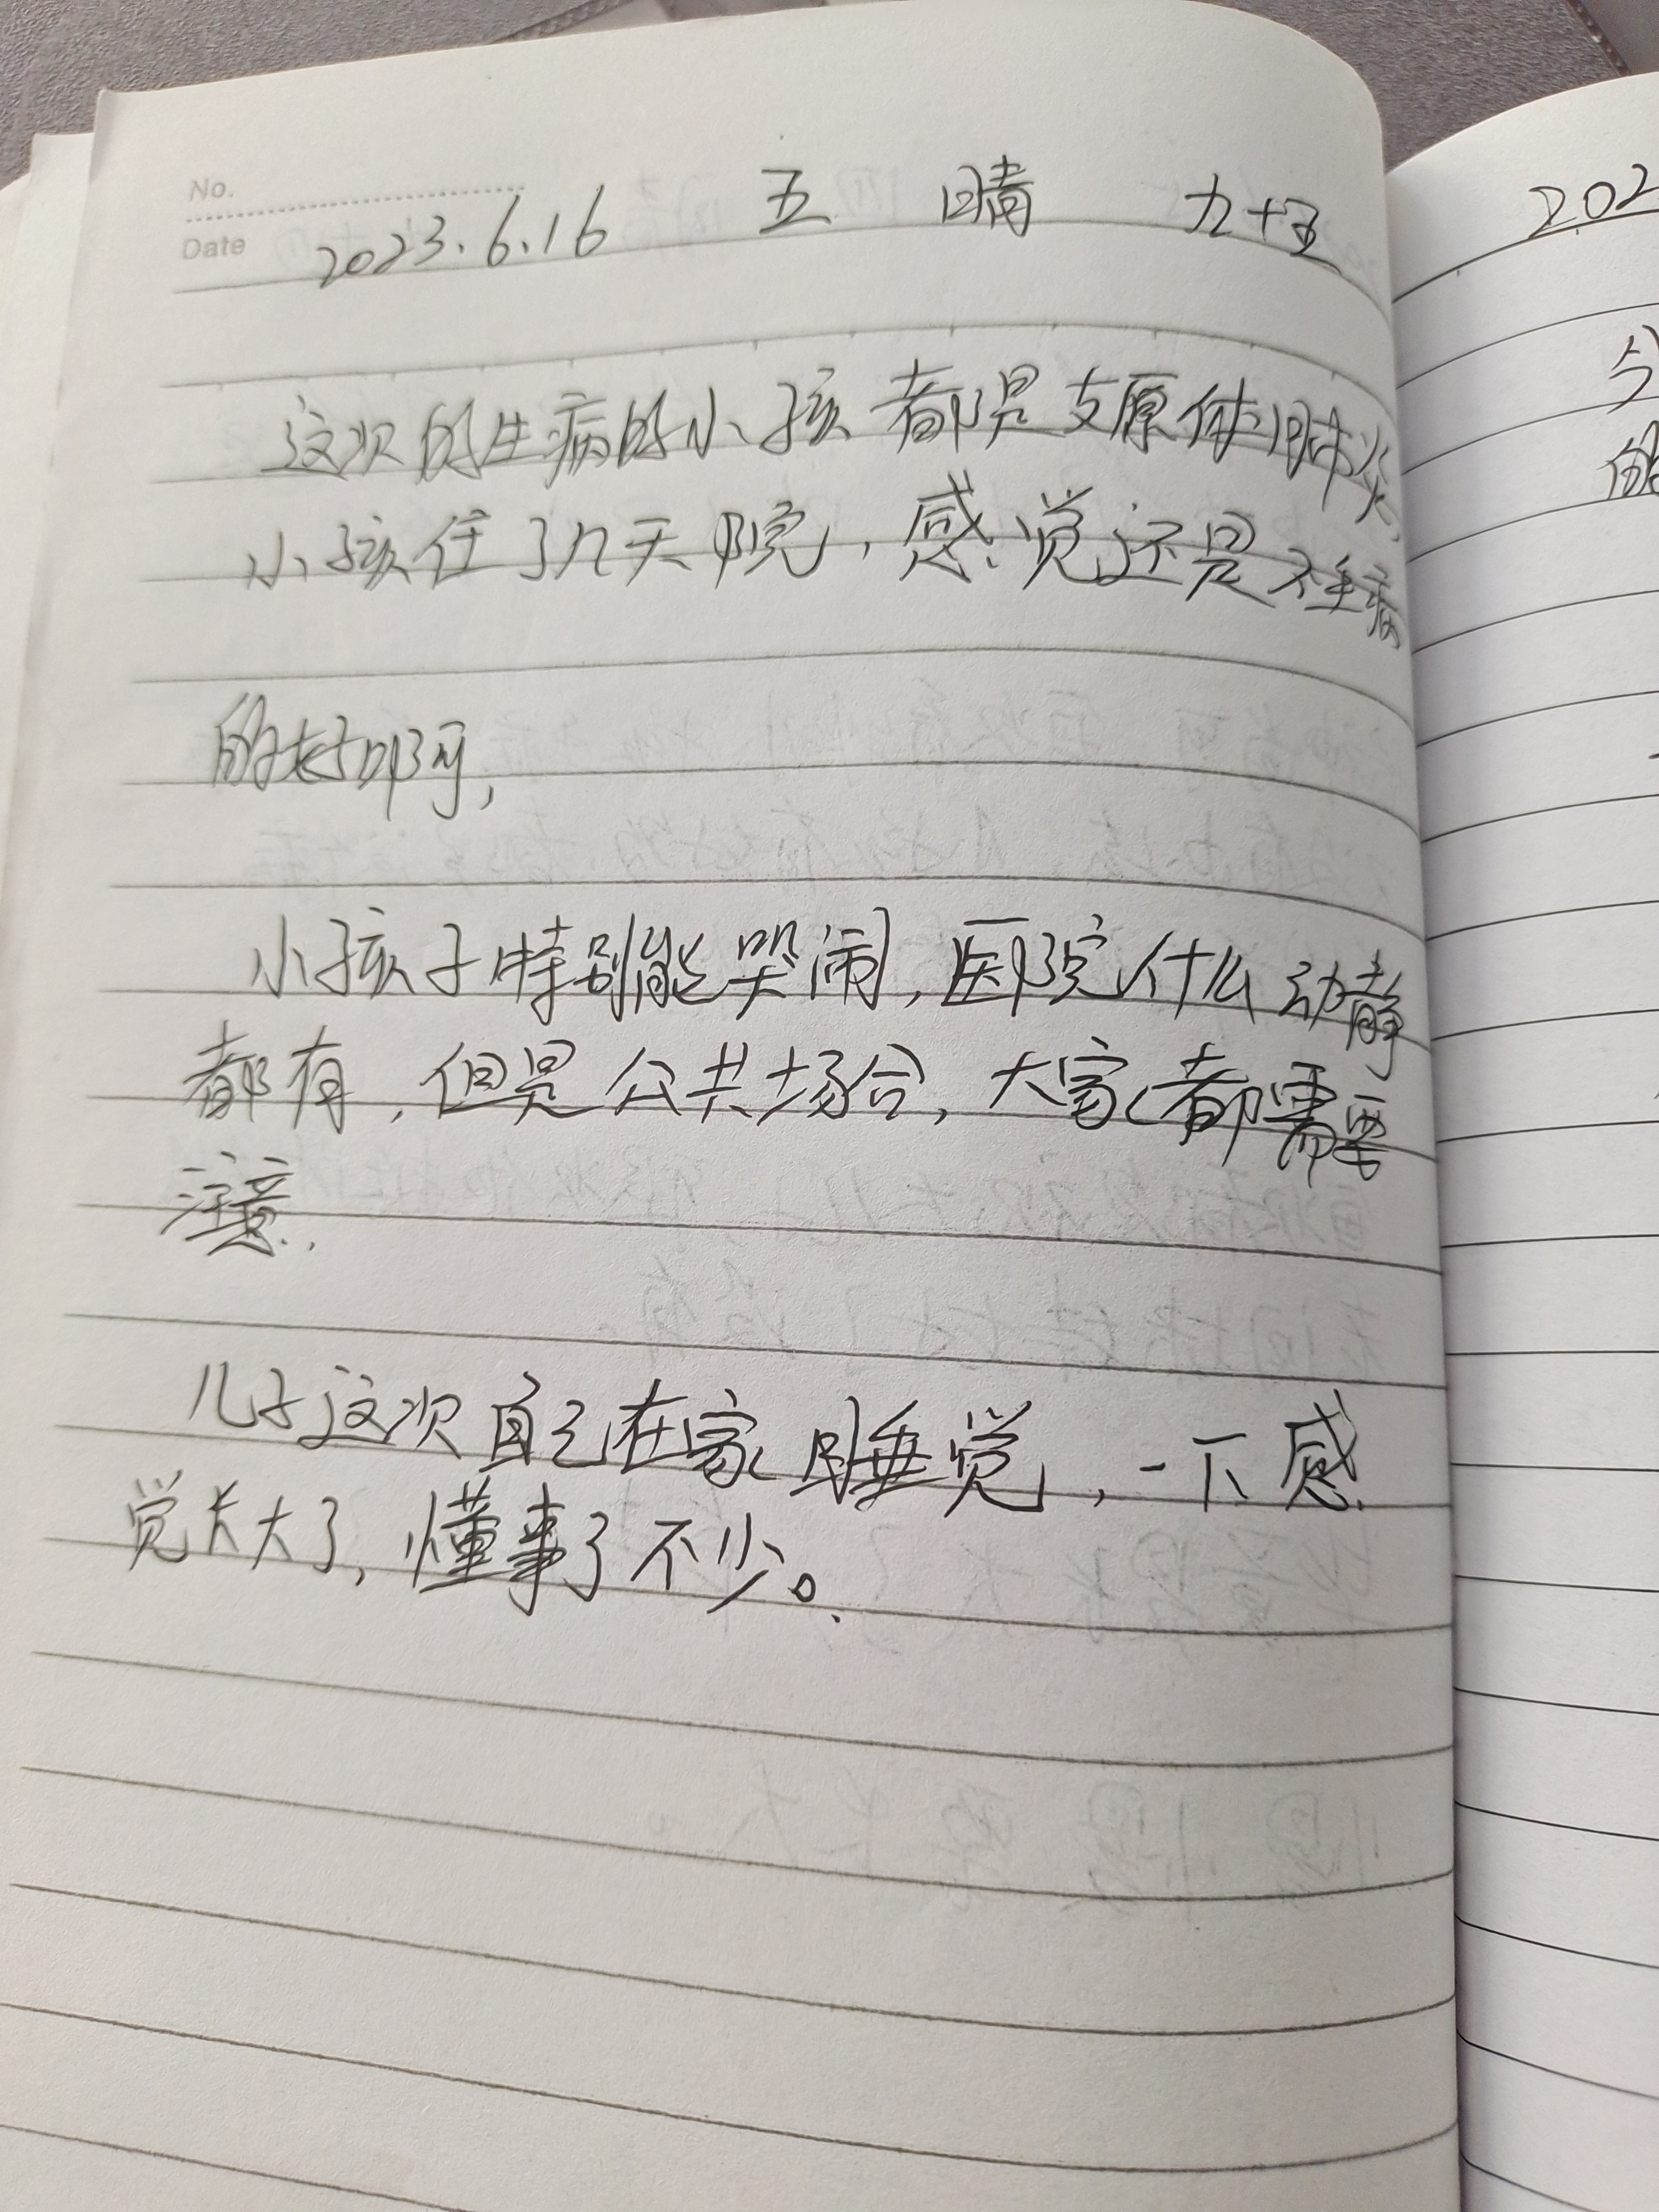 No.
Date 2023.6.16 五 晴 九十五
这次的生病的小孩都是支原体肺炎,
小孩住了几天院,感觉还是不生病
的好啊,
小孩子特别能哭闹,医院什么动静
都有,但是公共场合,大家都需要
注意.
儿子这次自己在家睡觉,一下感
觉长大了,懂事了不少。
202